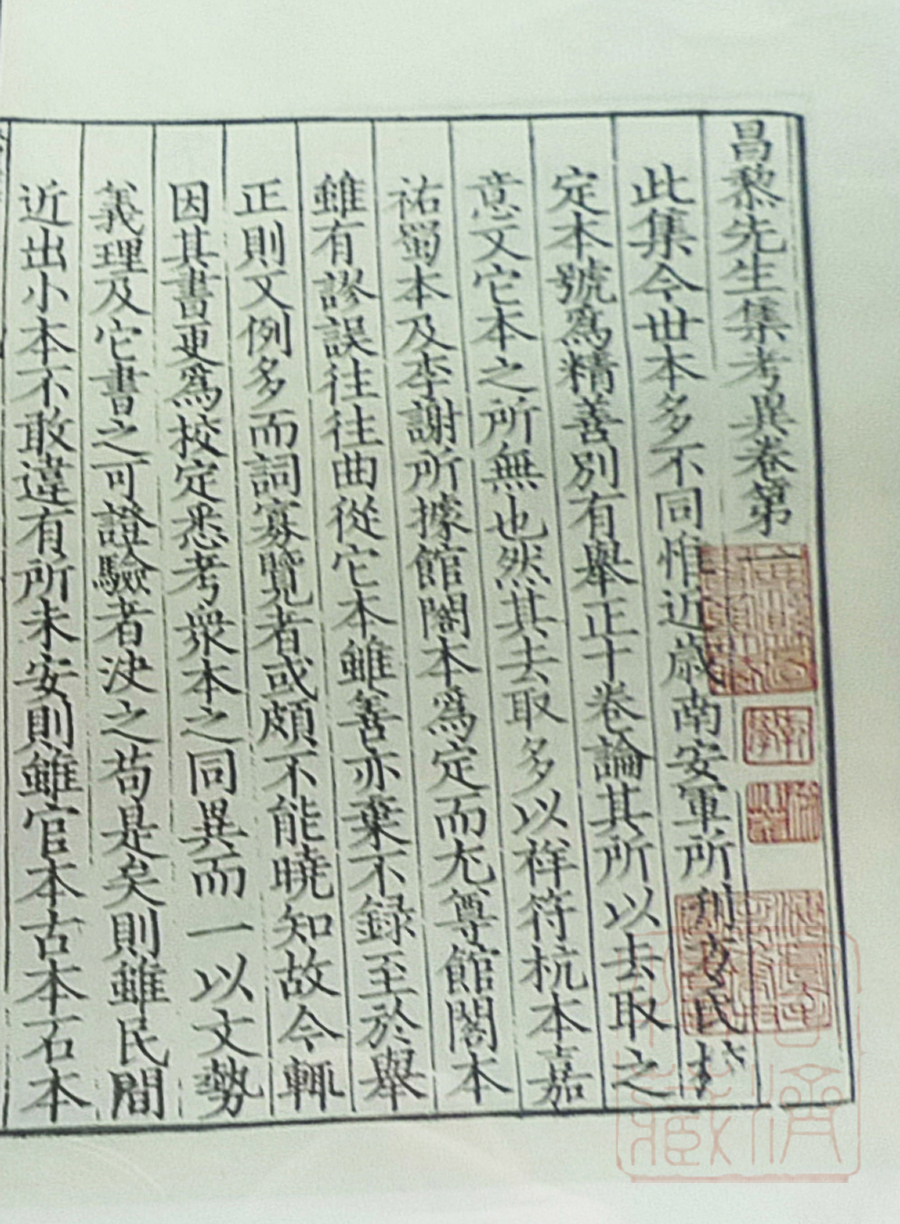 昌黎先生集考異卷第一
此集今世本多不同惟近歲南安軍所刊方氏校
定本號爲精善別有舉正十卷論其所以去取之
意又它本之所無也然其去取多以祥符杭本嘉
祐蜀本及李謝所據館閣本爲定而尤尊館閣本
雖有謬誤往往曲從它本雖善亦棄不録至於舉
正則又例多而詞寡覽者或頗不能曉知故今輒
因其書更爲校定悉考衆本之同異而一以文勢
義理及它書之可證驗者決之苟是矣則雖民間
近出小本不敢違有所未安則雖官本古本石本